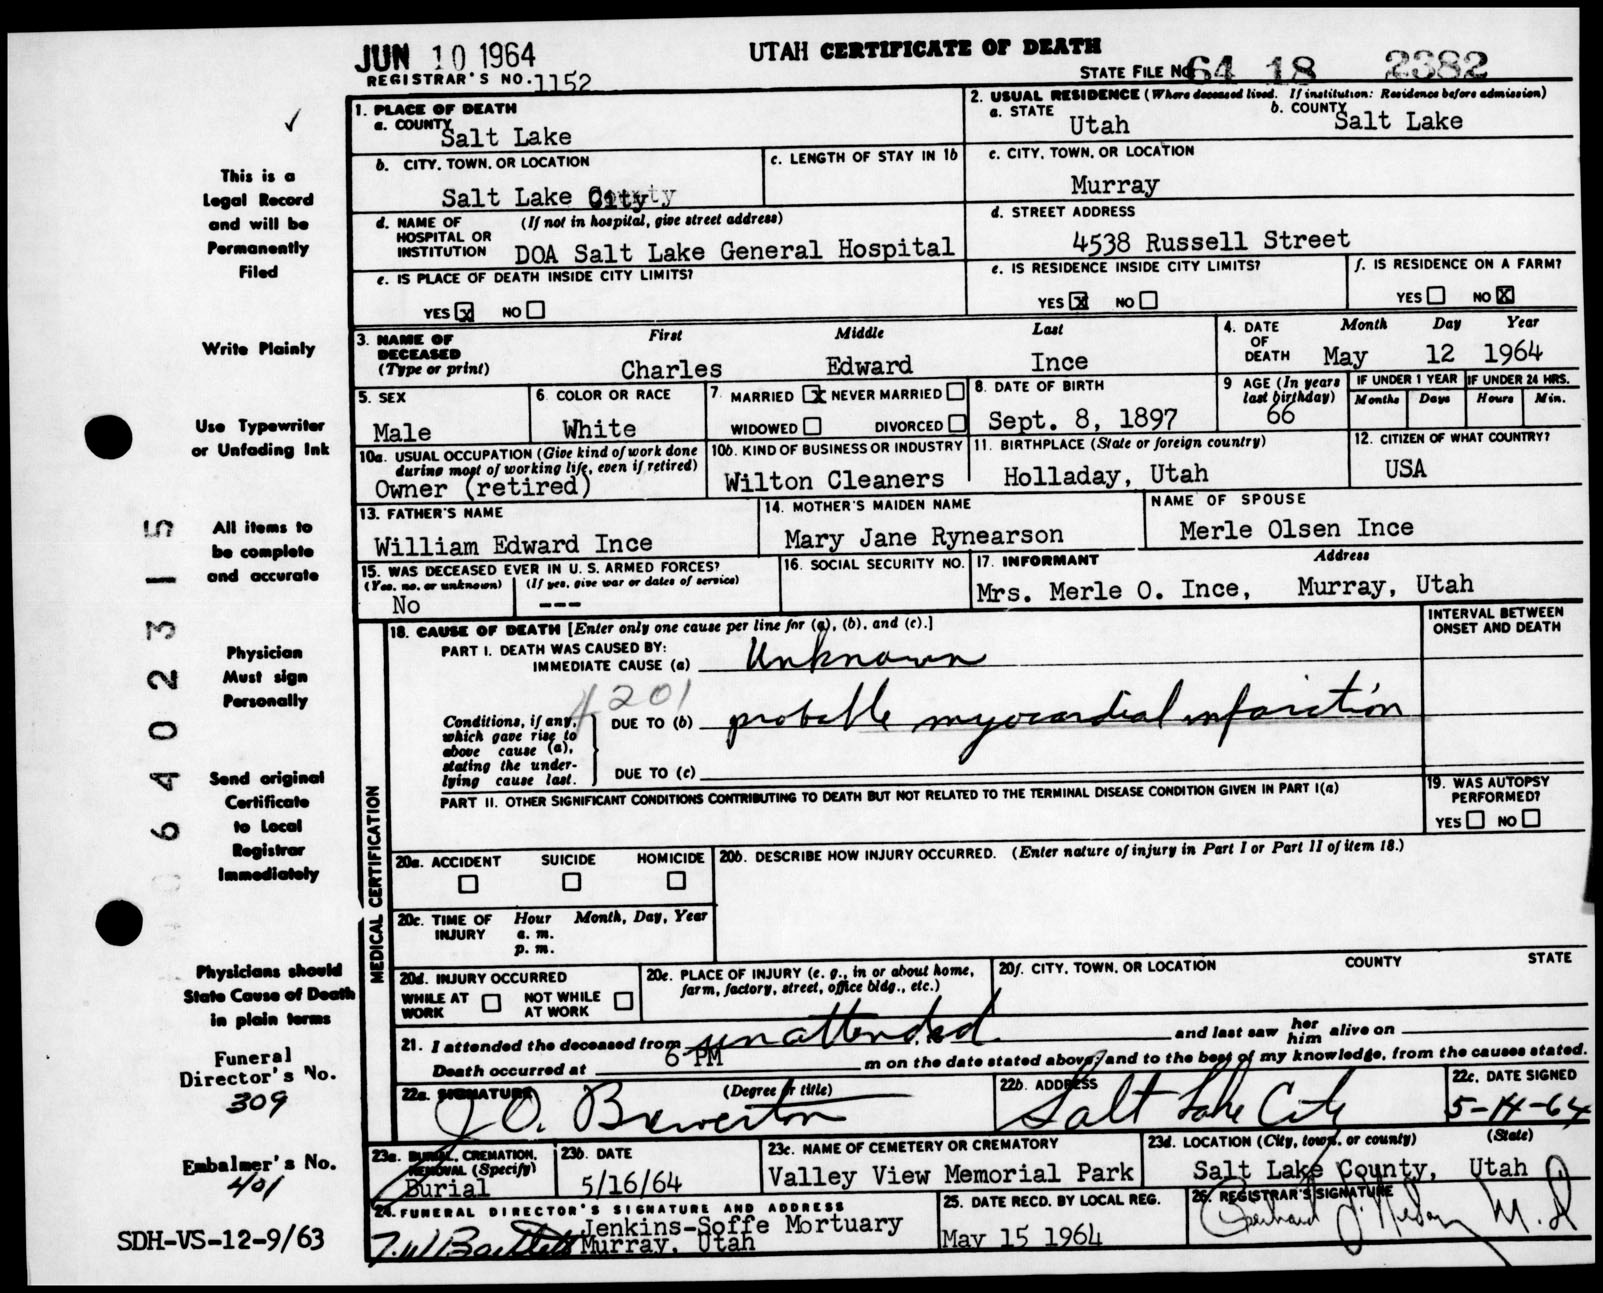 JUN 10 1964
UTAH CERTIFICATE OF DEATH
REGISTRAR'S NO. 1152
STATE FILE NO. 64 18 2382
This is a
Legal Record
and will be
Permanently
Filed
Write Plainly
Use Typewriter
or Unfading Ink
All items to
be complete
and accurate
Physician
Must sign
Personally
Send original
Certificate
to Local
Registrar
Immediately
Physicians should
State Cause of Death
in plain terms
Funeral
Director's No.
309
Embalmer's No.
401
SDH-VS-12-9/63
64023-15
1. PLACE OF DEATH
a. COUNTY
Salt Lake
2. USUAL RESIDENCE (Where deceased lived. If institution: Residence before admission)
a. STATE
Utah
b. COUNTY
Salt Lake
b. CITY, TOWN, OR LOCATION
Salt Lake City
c. LENGTH OF STAY IN 1b
c. CITY, TOWN, OR LOCATION
Murray
d. NAME OF HOSPITAL OR INSTITUTION
(If not in hospital, give street address)
DOA Salt Lake General Hospital
d. STREET ADDRESS
4538 Russell Street
e. IS PLACE OF DEATH INSIDE CITY LIMITS?
YES x NO
e. IS RESIDENCE INSIDE CITY LIMITS?
YES x NO
f. IS RESIDENCE ON A FARM?
YES NO x
3. NAME OF DECEASED (Type or print)
First Middle Last
Charles Edward Ince
4. DATE OF DEATH
Month Day Year
May 12 1964
5. SEX
Male
6. COLOR OR RACE
White
7. MARRIED x NEVER MARRIED
WIDOWED DIVORCED
8. DATE OF BIRTH
Sept. 8, 1897
9 AGE (In years last birthday)
66
IF UNDER 1 YEAR
Months Days
IF UNDER 24 HRS.
Hours Min.
10a. USUAL OCCUPATION (Give kind of work done during most of working life, even if retired)
Owner (retired)
10b. KIND OF BUSINESS OR INDUSTRY
Wilton Cleaners
11. BIRTHPLACE (State or foreign country)
Holladay, Utah
12. CITIZEN OF WHAT COUNTRY?
USA
13. FATHER'S NAME
William Edward Ince
14. MOTHER'S MAIDEN NAME
Mary Jane Rynearson
NAME OF SPOUSE
Merle Olsen Ince
15. WAS DECEASED EVER IN U. S. ARMED FORCES?
(Yes, no, or unknown) (If yes, give war or dates of service)
No ---
16. SOCIAL SECURITY NO.
17. INFORMANT Address
Mrs. Merle O. Ince, Murray, Utah
MEDICAL CERTIFICATION
18. CAUSE OF DEATH [Enter only one cause per line for (a), (b), and (c).]
INTERVAL BETWEEN ONSET AND DEATH
PART I. DEATH WAS CAUSED BY:
IMMEDIATE CAUSE (a) Unknown
4201
Conditions, if any, which gave rise to above cause (a), stating the underlying cause last.
DUE TO (b) probable myocardial infarction
DUE TO (c)
PART II. OTHER SIGNIFICANT CONDITIONS CONTRIBUTING TO DEATH BUT NOT RELATED TO THE TERMINAL DISEASE CONDITION GIVEN IN PART I(a)
19. WAS AUTOPSY PERFORMED?
YES NO
20a. ACCIDENT SUICIDE HOMICIDE
20b. DESCRIBE HOW INJURY OCCURRED. (Enter nature of injury in Part I or Part II of item 18.)
20c. TIME OF INJURY
Hour Month, Day, Year
a. m.
p. m.
20d. INJURY OCCURRED
WHILE AT WORK NOT WHILE AT WORK
20e. PLACE OF INJURY (e. g., in or about home, farm, factory, street, office bldg., etc.)
20f. CITY, TOWN, OR LOCATION COUNTY STATE
21. I attended the deceased from unattended and last saw her him alive on
Death occurred at 6 PM m on the date stated above; and to the best of my knowledge, from the causes stated.
22a. SIGNATURE (Degree or title)
J. O. Brewerton
22b. ADDRESS
Salt Lake City
22c. DATE SIGNED
5-14-64
23a. BURIAL, CREMATION, REMOVAL (Specify)
Burial
23b. DATE
5/16/64
23c. NAME OF CEMETERY OR CREMATORY
Valley View Memorial Park
23d. LOCATION (City, town, or county) (State)
Salt Lake County, Utah
24. FUNERAL DIRECTOR'S SIGNATURE AND ADDRESS
T. W. Bartlett Jenkins-Soffe Mortuary
Murray, Utah
25. DATE RECD. BY LOCAL REG.
May 15 1964
26. REGISTRAR'S SIGNATURE
M.D